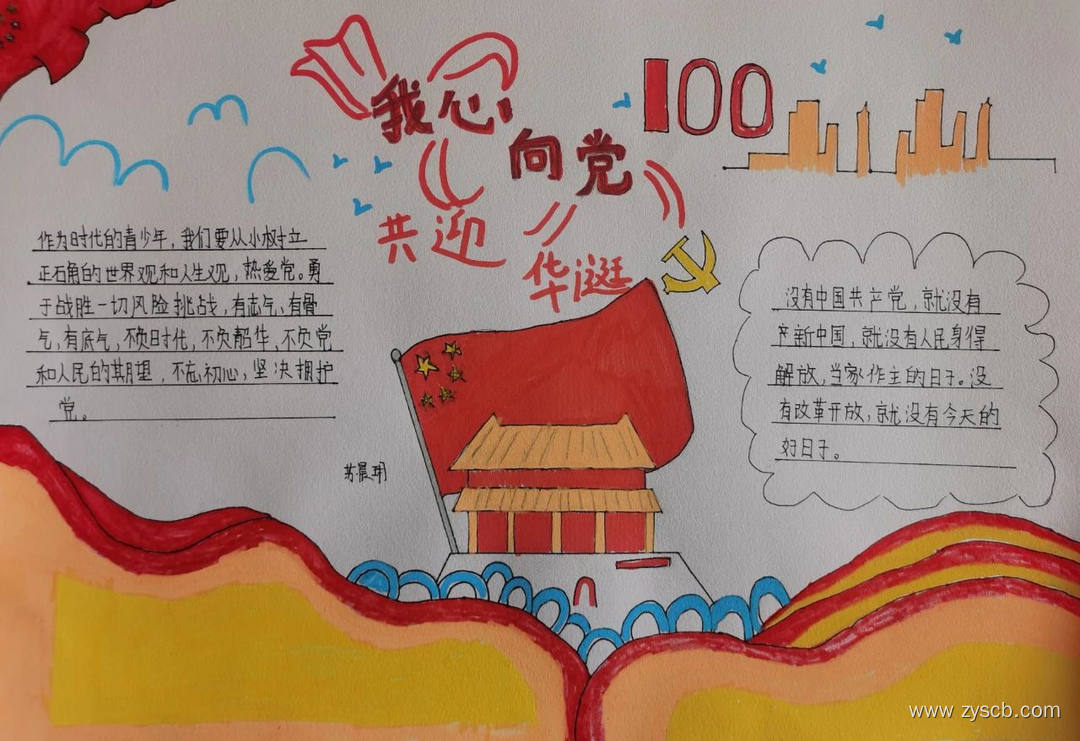 我心
100
向党
共迎
华诞
作为时代的青少年，我们要从小树立
正确的世界观和人生观，热爱党。勇
于战胜一切风险挑战，有志气、有骨
气，有底气，不负时代，不负韶华，不负党
和人民的期望，不忘初心，坚决拥护
党。
没有中国共产党，就没有
产新中国，就没有人民身得
解放，当家作主的日子。没
有改革开放，就没有今天的
好日子。
www.zyscb.com